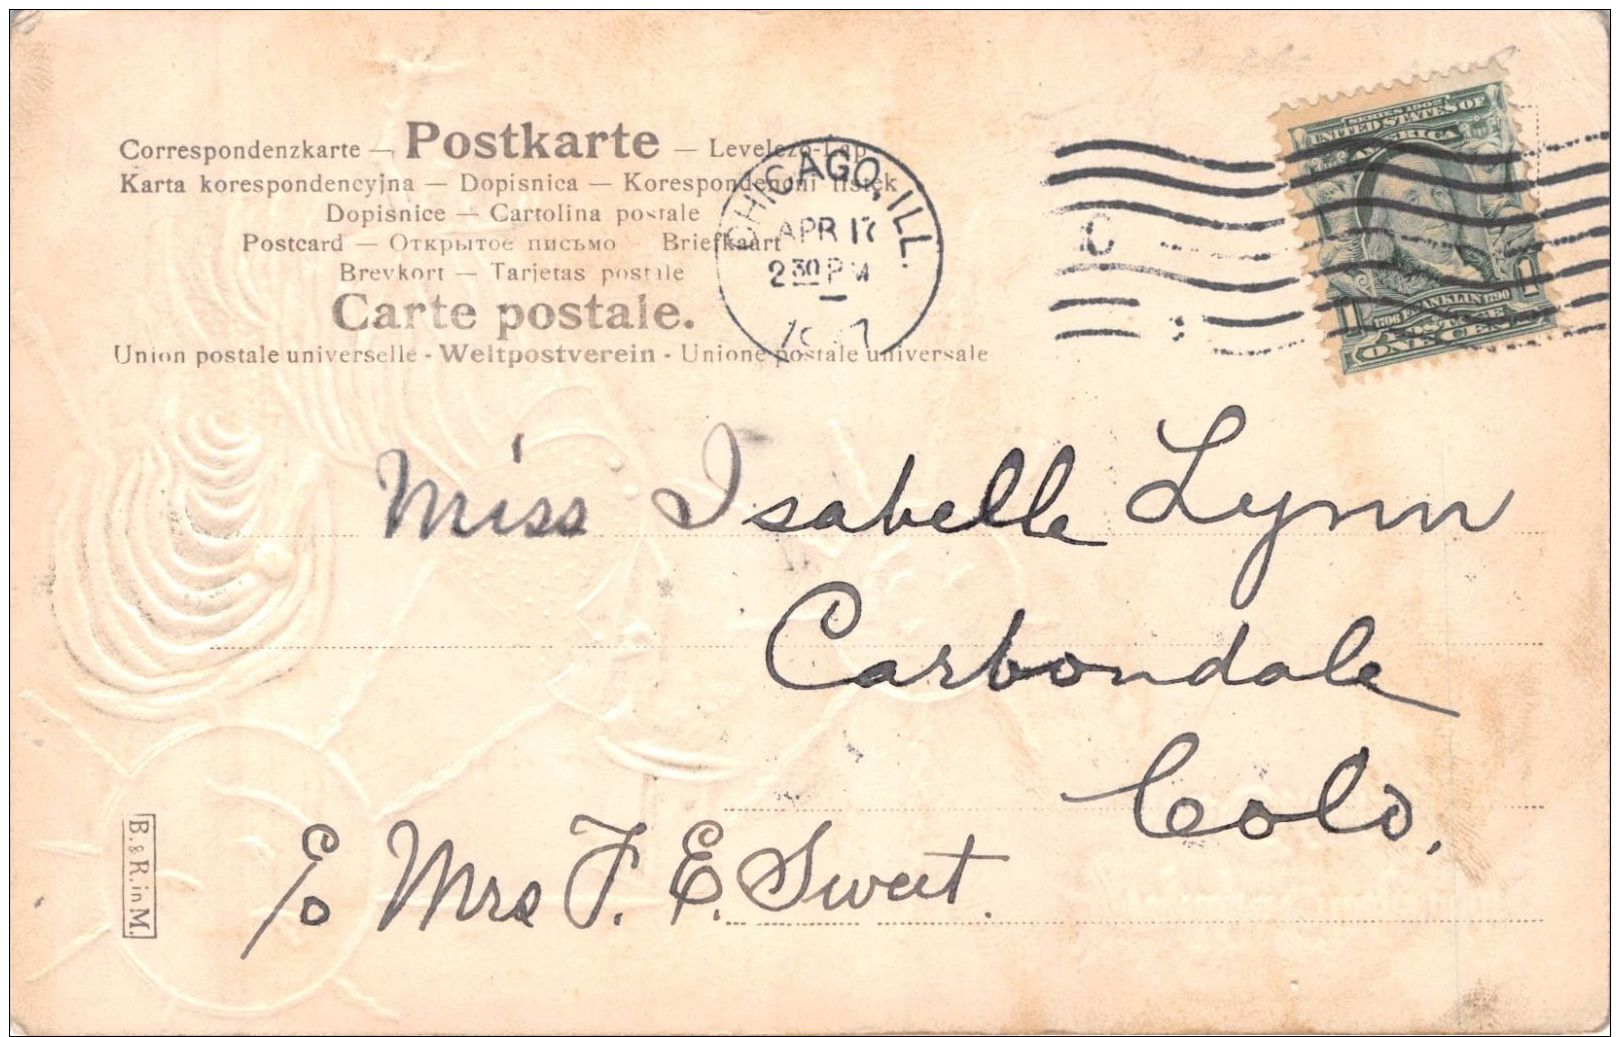 Correspondenzkarte — Postkarte — Levelező-Lap
Karta korespondencyjna — Dopisnica — Korespondenčni listek
Dopisnice — Cartolina postale
Postcard — Открытое письмо — Briefkaart
Brevkort — Tarjetas postale
Carte postale.
Union postale universelle - Weltpostverein - Unione postale universale
CHICAGO, ILL.
APR 17
2 30 PM
C
SERIES 1902
UNITED STATES OF
AMERICA
1706 FRANKLIN 1790
POSTAGE
1 1
ONE CENT
Miss Isabelle Lynn
Carbondale
Colo.
c/o Mrs F. E. Sweet.
B. & R. in M.